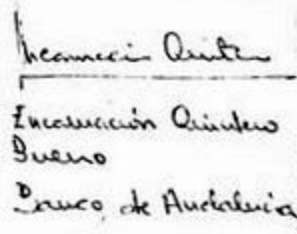 Encarnación Quintero
Encarnación Quintero
Bueno
Banco de Andalucía